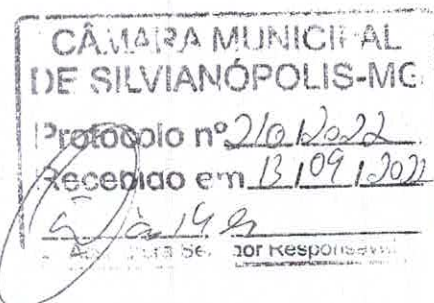 CÂMARA MUNICIPAL
DE SILVIANÓPOLIS-MG
Protocolo nº 210/2022
Recebido em 13/09/2022
às 14 h
Servidor Responsável